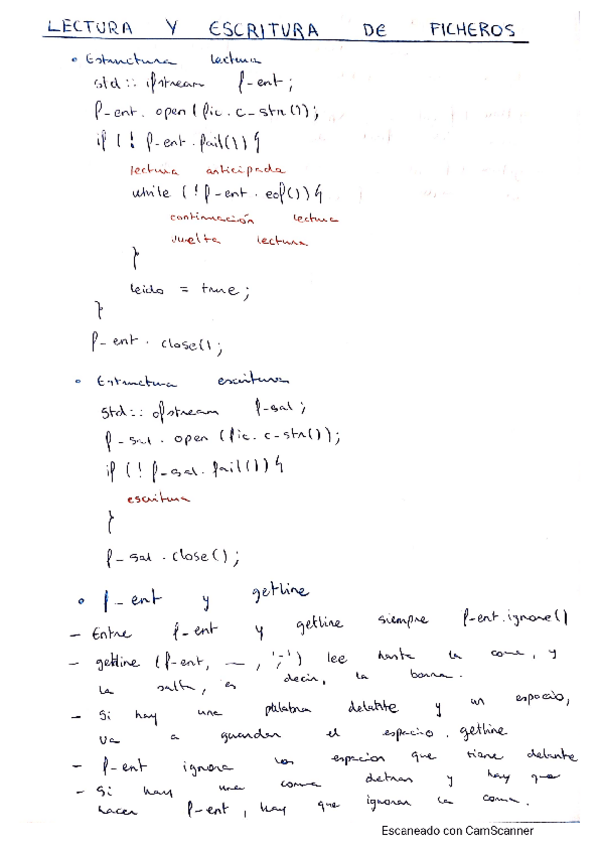 LECTURA Y ESCRITURA DE FICHEROS
• Estructura lectura
std:: ifstream f-ent;
f-ent. open (fic. c-str());
if (! f-ent. fail()) {
lectura anticipada
while (!f-ent. eof()) {
continuación lectura
vuelta lectura
}
leido = true;
}
f-ent. close();
• Estructura escritura
std:: ofstream f-sal;
f-sal. open (fic. c-str());
if (! f-sal. fail()) {
escritura
}
f-sal. close();
• f-ent y getline
- Entre f-ent y getline siempre f-ent.ignore()
- getline (f-ent, — , ';') lee hasta la coma, y
la salta, es decir, la borra.
- Si hay una palabra delante y un espacio,
va a guardar el espacio. getline
- f-ent ignora los espacios que tiene delante
- Si hay una coma detras y hay que
hacer f-ent, hay que ignorar la coma.
Escaneado con CamScanner